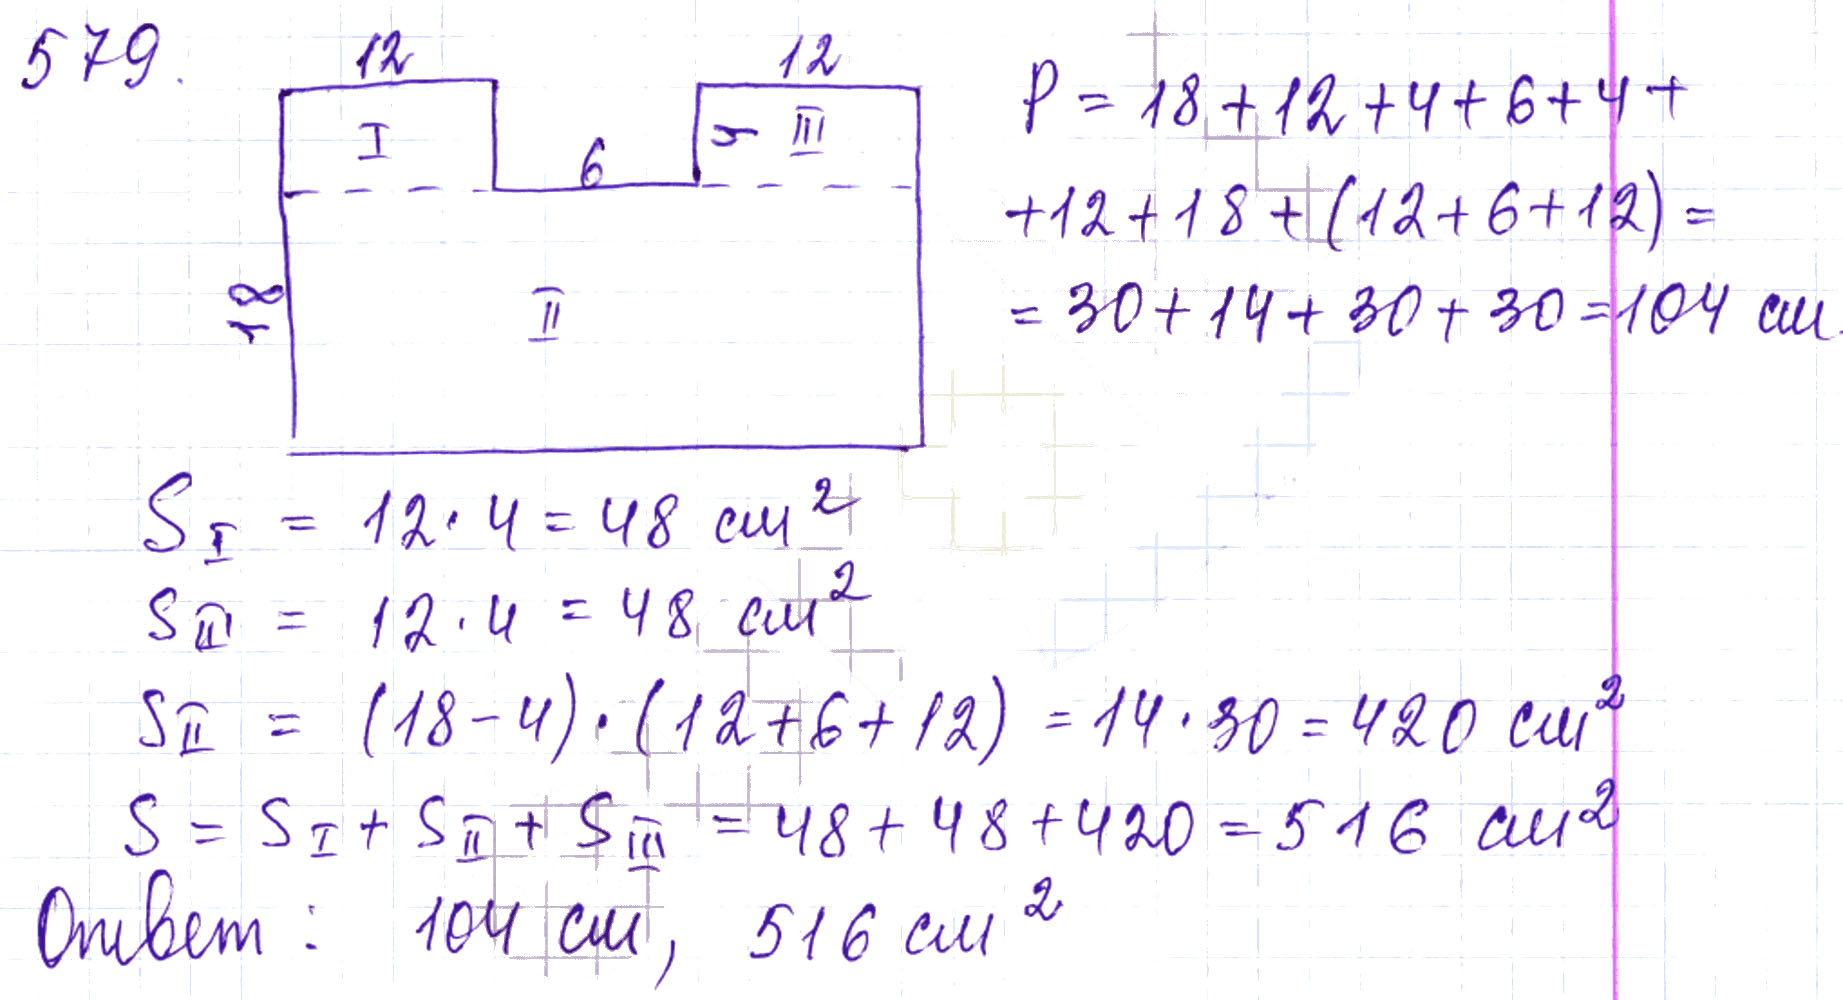 579.
12 12
I 4 III
6
18
II
P = 18 + 12 + 4 + 6 + 4 +
+ 12 + 18 + (12 + 6 + 12) =
= 30 + 14 + 30 + 30 = 104 см.
S I = 12 · 4 = 48 см²
S III = 12 · 4 = 48 см²
S II = (18 - 4) · (12 + 6 + 12) = 14 · 30 = 420 см²
S = S I + S II + S III = 48 + 48 + 420 = 516 см²
Ответ: 104 см, 516 см²